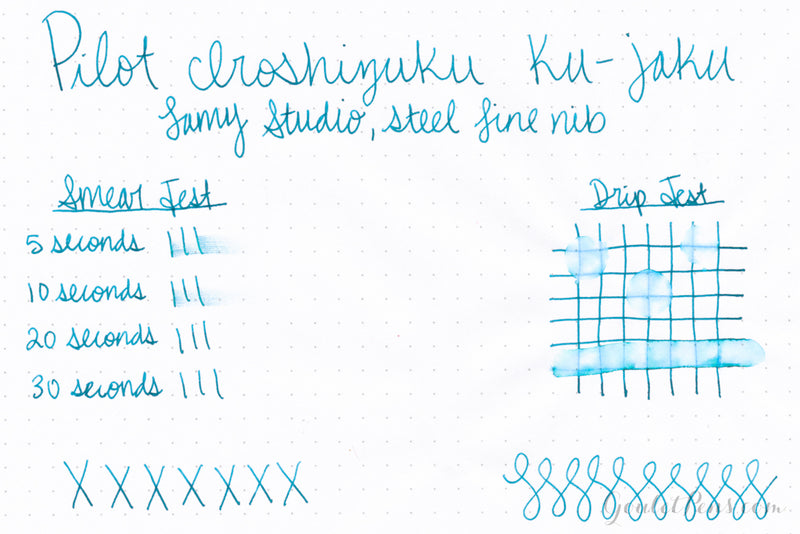 Pilot Iroshizuku Ku-jaku
Lamy Studio, steel fine nib
Smear Test
5 seconds
10 seconds
20 seconds
30 seconds
Drip Test
XXXXXXX
GouletPens.com